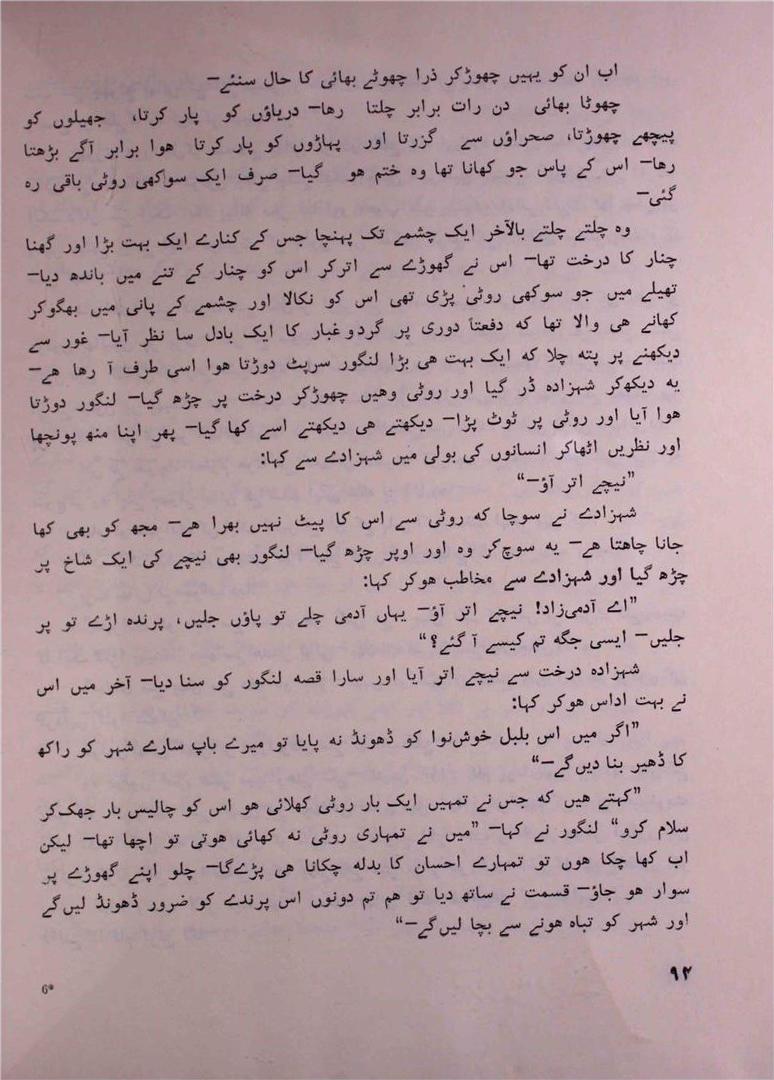 اب ان کو یہیں چھوڑکر ذرا چھوٹے بھائی کا حال سنئے—
چھوٹا بھائی دن رات برابر چلتا رہا— دریاؤں کو پار کرتا، جھیلوں کو
پیچھے چھوڑتا، صحراؤں سے گزرتا اور پہاڑوں کو پار کرتا ہوا برابر آگے بڑھتا
رہا— اس کے پاس جو کھانا تھا وہ ختم ہو گیا— صرف ایک سوکھی روٹی باقی رہ
گئی—
وہ چلتے چلتے بالآخر ایک چشمے تک پہنچا جس کے کنارے ایک بہت بڑا اور گھنا
چنار کا درخت تھا— اس نے گھوڑے سے اترکر اس کو چنار کے تنے میں باندھ دیا—
تھیلے میں جو سوکھی روٹی پڑی تھی اس کو نکالا اور چشمے کے پانی میں بھگوکر
کھانے ہی والا تھا کہ دفعتاً دوری پر گردوغبار کا ایک بادل سا نظر آیا— غور سے
دیکھنے پر پتہ چلا کہ ایک بہت ہی بڑا لنگور سرپٹ دوڑتا ہوا اسی طرف آ رہا ہے—
یہ دیکھکر شہزادہ ڈر گیا اور روٹی وہیں چھوڑکر درخت پر چڑھ گیا— لنگور دوڑتا
ہوا آیا اور روٹی پر ٹوٹ پڑا— دیکھتے ہی دیکھتے اسے کھا گیا— پھر اپنا منھ پونچھا
اور نظریں اٹھاکر انسانوں کی بولی میں شہزادے سے کہا:
”نیچے اتر آؤ—“
شہزادے نے سوچا کہ روٹی سے اس کا پیٹ نہیں بھرا ہے— مجھ کو بھی کھا
جانا چاہتا ہے— یہ سوچ‌کر وہ اور اوپر چڑھ گیا— لنگور بھی نیچے کی ایک شاخ پر
چڑھ گیا اور شہزادے سے مخاطب ہوکر کہا:
”اے آدمی‌زاد! نیچے اتر آؤ— یہاں آدمی چلے تو پاؤں جلیں، پرندہ اڑے تو پر
جلیں— ایسی جگہ تم کیسے آ گئے؟“
شہزادہ درخت سے نیچے اتر آیا اور سارا قصہ لنگور کو سنا دیا— آخر میں اس
نے بہت اداس ہوکر کہا:
”اگر میں اس بلبل خوش‌نوا کو ڈھونڈ نہ پایا تو میرے باپ سارے شہر کو راکھ
کا ڈھیر بنا دیں‌گے—“
”کہتے ہیں کہ جس نے تمہیں ایک بار روٹی کھلائی ہو اس کو چالیس بار جھک‌کر
سلام کرو“ لنگور نے کہا— ”میں نے تمہاری روٹی نہ کھائی ہوتی تو اچھا تھا— لیکن
اب کھا چکا ہوں تو تمہارے احسان کا بدلہ چکانا ہی پڑےگا— چلو اپنے گھوڑے پر
سوار ہو جاؤ— قسمت نے ساتھ دیا تو ہم تم دونوں اس پرندے کو ضرور ڈھونڈ لیں‌گے
اور شہر کو تباہ ہونے سے بچا لیں‌گے—“
۹۲
6*